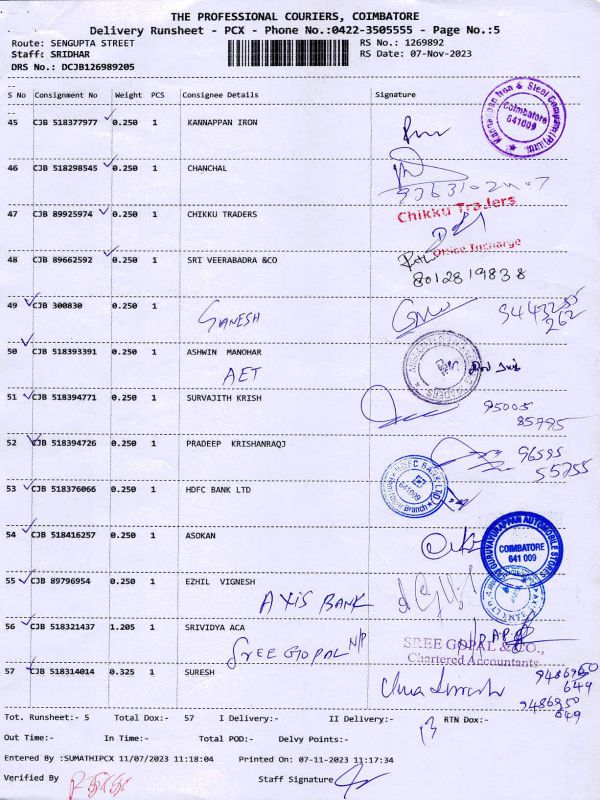 THE PROFESSIONAL COURIERS, COIMBATORE
Delivery Runsheet - PCX - Phone No.:0422-3505555 - Page No.:5
Route: SENGUPTA STREET RS No.: 1269892
Staff: SRIDHAR RS Date: 07-Nov-2023
DRS No.: DCJB126989205
S No Consignment No Weight PCS Consignee Details Signature
45 CJB 518377977 0.250 1 KANNAPPAN IRON
Coimbatore 641009
46 CJB 518298545 0.250 1 CHANCHAL
47 CJB 89925974 0.250 1 CHIKKU TRADERS
Chikku Traders
Office Incharge
48 CJB 89662592 0.250 1 SRI VEERABADRA &CO
8012819838
49 CJB 300830 0.250 1
GANESH
9443255
262
50 CJB 518393391 0.250 1 ASHWIN MANOHAR
AET
51 CJB 518394771 0.250 1 SURVAJITH KRISH
95005
85795
52 CJB 518394726 0.250 1 PRADEEP KRISHANRAQJ
96595
55755
53 CJB 518376066 0.250 1 HDFC BANK LTD
HDFC BANK LTD
641009
54 CJB 518416257 0.250 1 ASOKAN
SRI GURUVAYURAPPAN AUTOMOBILE STORES
COIMBATORE
641 009
55 CJB 89796954 0.250 1 EZHIL VIGNESH
AXIS BANK
56 CJB 518321437 1.205 1 SRIVIDYA ACA
SREE GOPAL N/P
SREE GOPAL & CO.,
Chartered Accountants
57 CJB 518314014 0.325 1 SURESH
9486950
649
9486950
649
Tot. Runsheet:- 5 Total Dox:- 57 I Delivery:- II Delivery:- RTN Dox:-
13
Out Time:- In Time:- Total POD:- Delvy Points:-
Entered By :SUMATHIPCX 11/07/2023 11:18:04 Printed On: 07-11-2023 11:17:34
Verified By Staff Signature